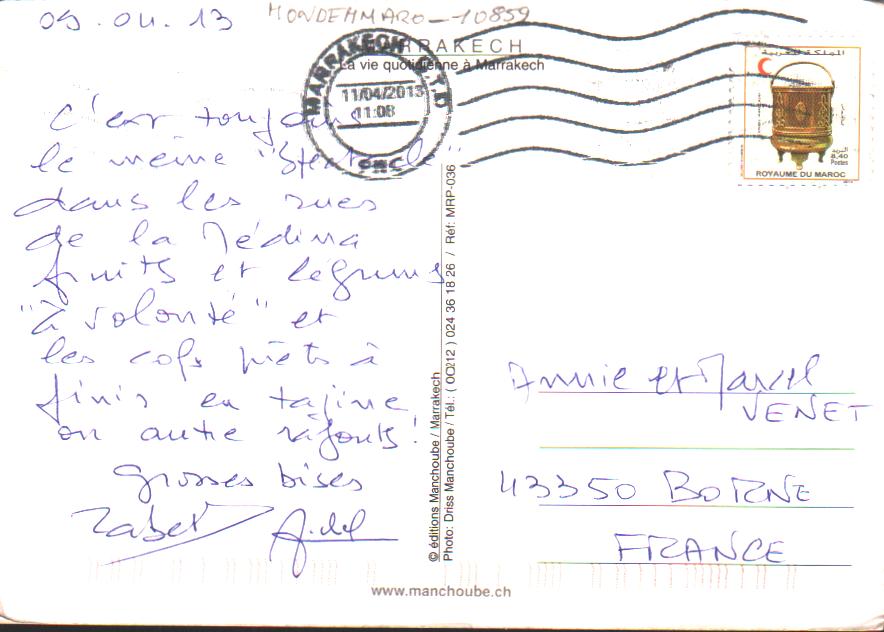 09.04.13
MONDEMMARO-10859
MARRAKECH
La vie quotidienne à Marrakech
11/04/2013
11:08
المملكة المغربية
البريد
8,40
Postes
ROYAUME DU MAROC
C'est toujours
le même
dans les rues
de la Médina
fruits et légumes
"à volonté" et
les cops prêts à
finir en tajine
ou autre ragouts!
grosses bises
Zabet
© éditions Manchoube / Marrakech
Photo: Driss Manchoube / Tél.: ( 00212 ) 024 36 18 26 / Réf: MRP-036
Annie et Marcel
VENET
43350 BORNE
FRANCE
www.manchoube.ch